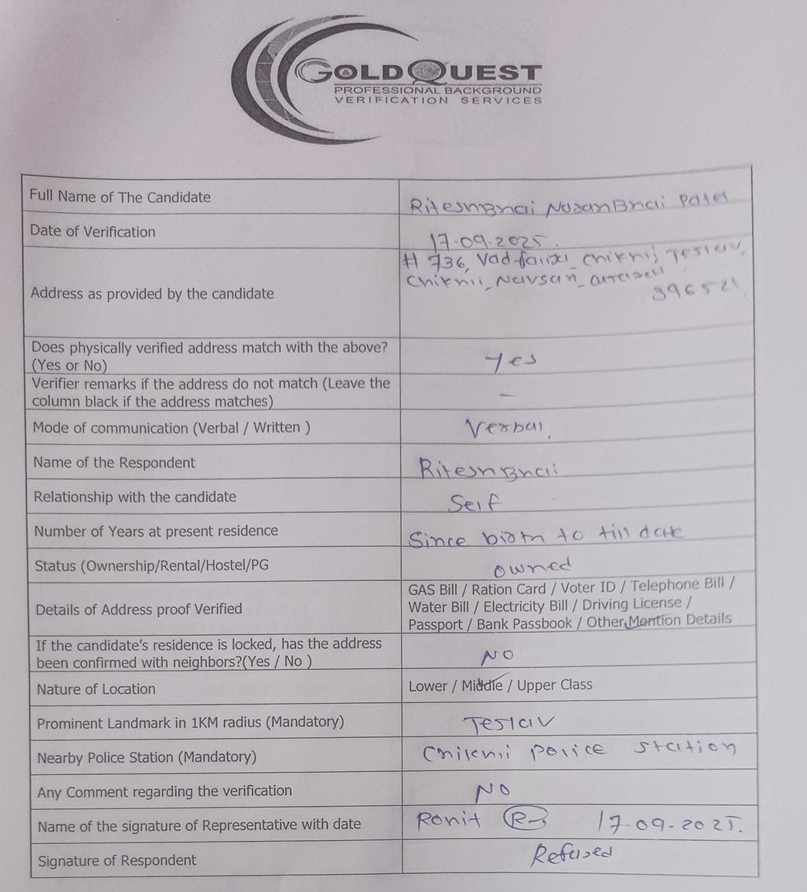 GOLDQUEST
PROFESSIONAL BACKGROUND
VERIFICATION SERVICES
Full Name of The Candidate
RiteshBhai NusanBhai Patel
Date of Verification
17-09-2025.
Address as provided by the candidate
# 736, Vad faliya_ Chikhli, Teslav,
Chikhli_Navsari_
396521.
Does physically verified address match with the above?
(Yes or No)
Yes
Verifier remarks if the address do not match (Leave the
column black if the address matches)
–
Mode of communication (Verbal / Written )
Verbal.
Name of the Respondent
RiteshBhai
Relationship with the candidate
Self
Number of Years at present residence
Since birth to till date
Status (Ownership/Rental/Hostel/PG
owned
Details of Address proof Verified
GAS Bill / Ration Card / Voter ID / Telephone Bill /
Water Bill / Electricity Bill / Driving License /
Passport / Bank Passbook / Other Mention Details
If the candidate's residence is locked, has the address
been confirmed with neighbors?(Yes / No )
NO
Nature of Location
Lower / Middle / Upper Class
Prominent Landmark in 1KM radius (Mandatory)
Teslav
Nearby Police Station (Mandatory)
Chikhli police station
Any Comment regarding the verification
NO
Name of the signature of Representative with date
Ronit R 17-09-2025.
Signature of Respondent
Refused